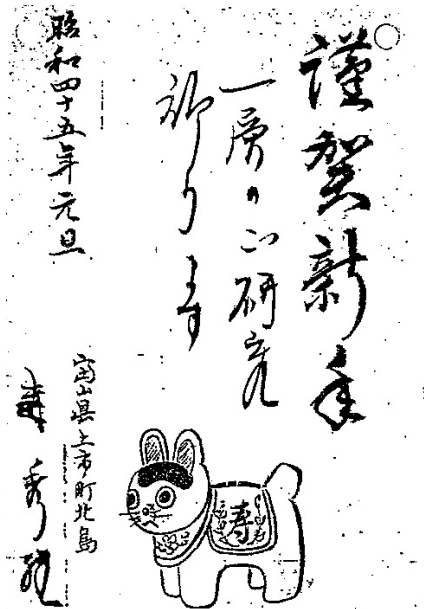 謹賀新年
一層のご研究
祈ります
昭和四十五年元旦
富山県上市町北島
秀
寿